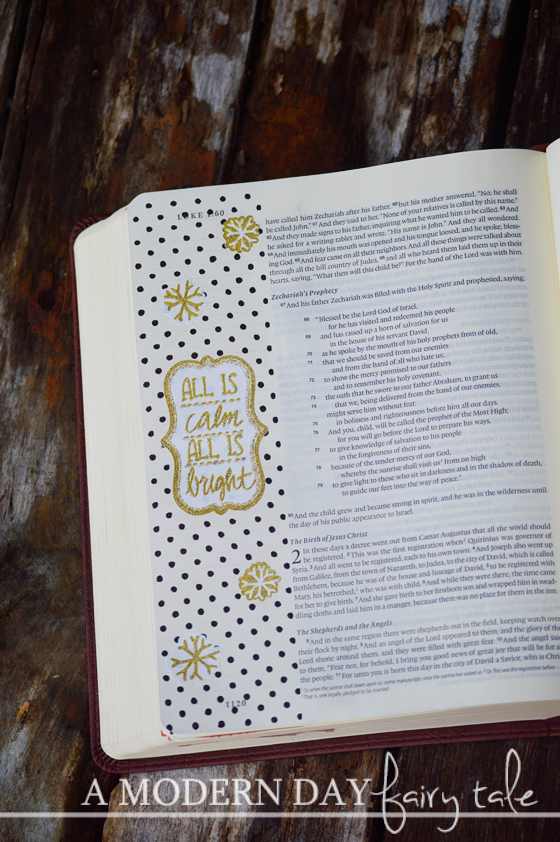 LUKE 1:60
ALL IS
calm
ALL IS
bright
1120
have called him Zechariah after his father, 60 but his mother answered, "No; he shall
be called John." 61 And they said to her, "None of your relatives is called by this name."
62 And they made signs to his father, inquiring what he wanted him to be called. 63 And
he asked for a writing tablet and wrote, "His name is John." And they all wondered.
64 And immediately his mouth was opened and his tongue loosed, and he spoke, bless-
ing God. 65 And fear came on all their neighbors. And all these things were talked about
through all the hill country of Judea, 66 and all who heard them laid them up in their
hearts, saying, "What then will this child be?" For the hand of the Lord was with him.
Zechariah's Prophecy
67 And his father Zechariah was filled with the Holy Spirit and prophesied, saying,
68 "Blessed be the Lord God of Israel,
for he has visited and redeemed his people
69 and has raised up a horn of salvation for us
in the house of his servant David,
70 as he spoke by the mouth of his holy prophets from of old,
71 that we should be saved from our enemies
and from the hand of all who hate us;
72 to show the mercy promised to our fathers
and to remember his holy covenant,
73 the oath that he swore to our father Abraham, to grant us
74 that we, being delivered from the hand of our enemies,
might serve him without fear,
75 in holiness and righteousness before him all our days.
76 And you, child, will be called the prophet of the Most High;
for you will go before the Lord to prepare his ways,
77 to give knowledge of salvation to his people
in the forgiveness of their sins,
78 because of the tender mercy of our God,
whereby the sunrise shall visit us from on high
79 to give light to those who sit in darkness and in the shadow of death,
to guide our feet into the way of peace."
80 And the child grew and became strong in spirit, and he was in the wilderness until
the day of his public appearance to Israel.
The Birth of Jesus Christ
2 In those days a decree went out from Caesar Augustus that all the world should
be registered. 2 This was the first registration when Quirinius was governor of
Syria. 3 And all went to be registered, each to his own town. 4 And Joseph also went up
from Galilee, from the town of Nazareth, to Judea, to the city of David, which is called
Bethlehem, because he was of the house and lineage of David, 5 to be registered with
Mary, his betrothed, who was with child. 6 And while they were there, the time came
for her to give birth. 7 And she gave birth to her firstborn son and wrapped him in swad-
dling cloths and laid him in a manger, because there was no place for them in the inn.
The Shepherds and the Angels
8 And in the same region there were shepherds out in the field, keeping watch over
their flock by night. 9 And an angel of the Lord appeared to them, and the glory of the
Lord shone around them, and they were filled with great fear. 10 And the angel said
to them, "Fear not, for behold, I bring you good news of great joy that will be for all
the people. 11 For unto you is born this day in the city of David a Savior, who is Christ
A MODERN DAY fairy tale